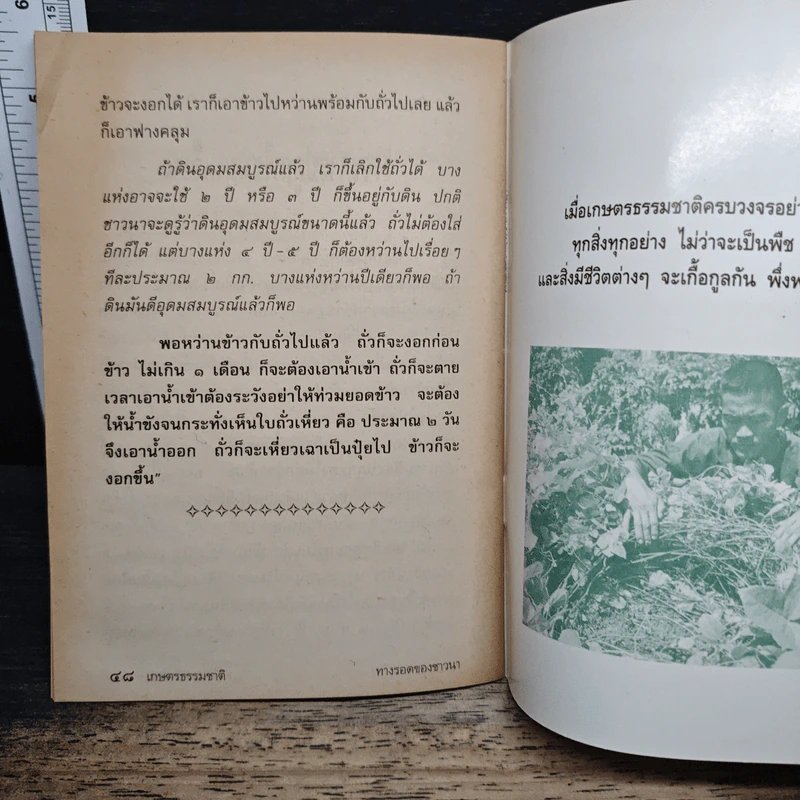 ข้าวจะงอกได้ เราก็เอาข้าวไปหว่านพร้อมกับถั่วไปเลย แล้ว
ก็เอาฟางคลุม
ถ้าดินอุดมสมบูรณ์แล้ว เราก็เลิกใช้ถั่วได้ บาง
แห่งอาจจะใช้ ๒ ปี หรือ ๓ ปี ก็ขึ้นอยู่กับดิน ปกติ
ชาวนาจะดูรู้ว่าดินอุดมสมบูรณ์ขนาดนี้แล้ว ถั่วไม่ต้องใส่
อีกก็ได้ แต่บางแห่ง ๔ ปี-๕ ปี ก็ต้องหว่านไปเรื่อยๆ
ทีละประมาณ ๒ กก. บางแห่งหว่านปีเดียวก็พอ ถ้า
ดินมันดีอุดมสมบูรณ์แล้วก็พอ
พอหว่านข้าวกับถั่วไปแล้ว ถั่วก็จะงอกก่อน
ข้าว ไม่เกิน ๑ เดือน ก็จะต้องเอาน้ำเข้า ถั่วก็จะตาย
เวลาเอาน้ำเข้าต้องระวังอย่าให้ท่วมยอดข้าว จะต้อง
ให้น้ำขังจนกระทั่งเห็นใบถั่วเหี่ยว คือ ประมาณ ๒ วัน
จึงเอาน้ำออก ถั่วก็จะเหี่ยวเฉาเป็นปุ๋ยไป ข้าวก็จะ
งอกขึ้น"
๔๘ เกษตรธรรมชาติ
ทางรอดของชาวนา
เมื่อเกษตรธรรมชาติครบวงจรอย่า
ทุกสิ่งทุกอย่าง ไม่ว่าจะเป็นพืช
และสิ่งมีชีวิตต่างๆ จะเกื้อกูลกัน พึ่งพ
6
15
5